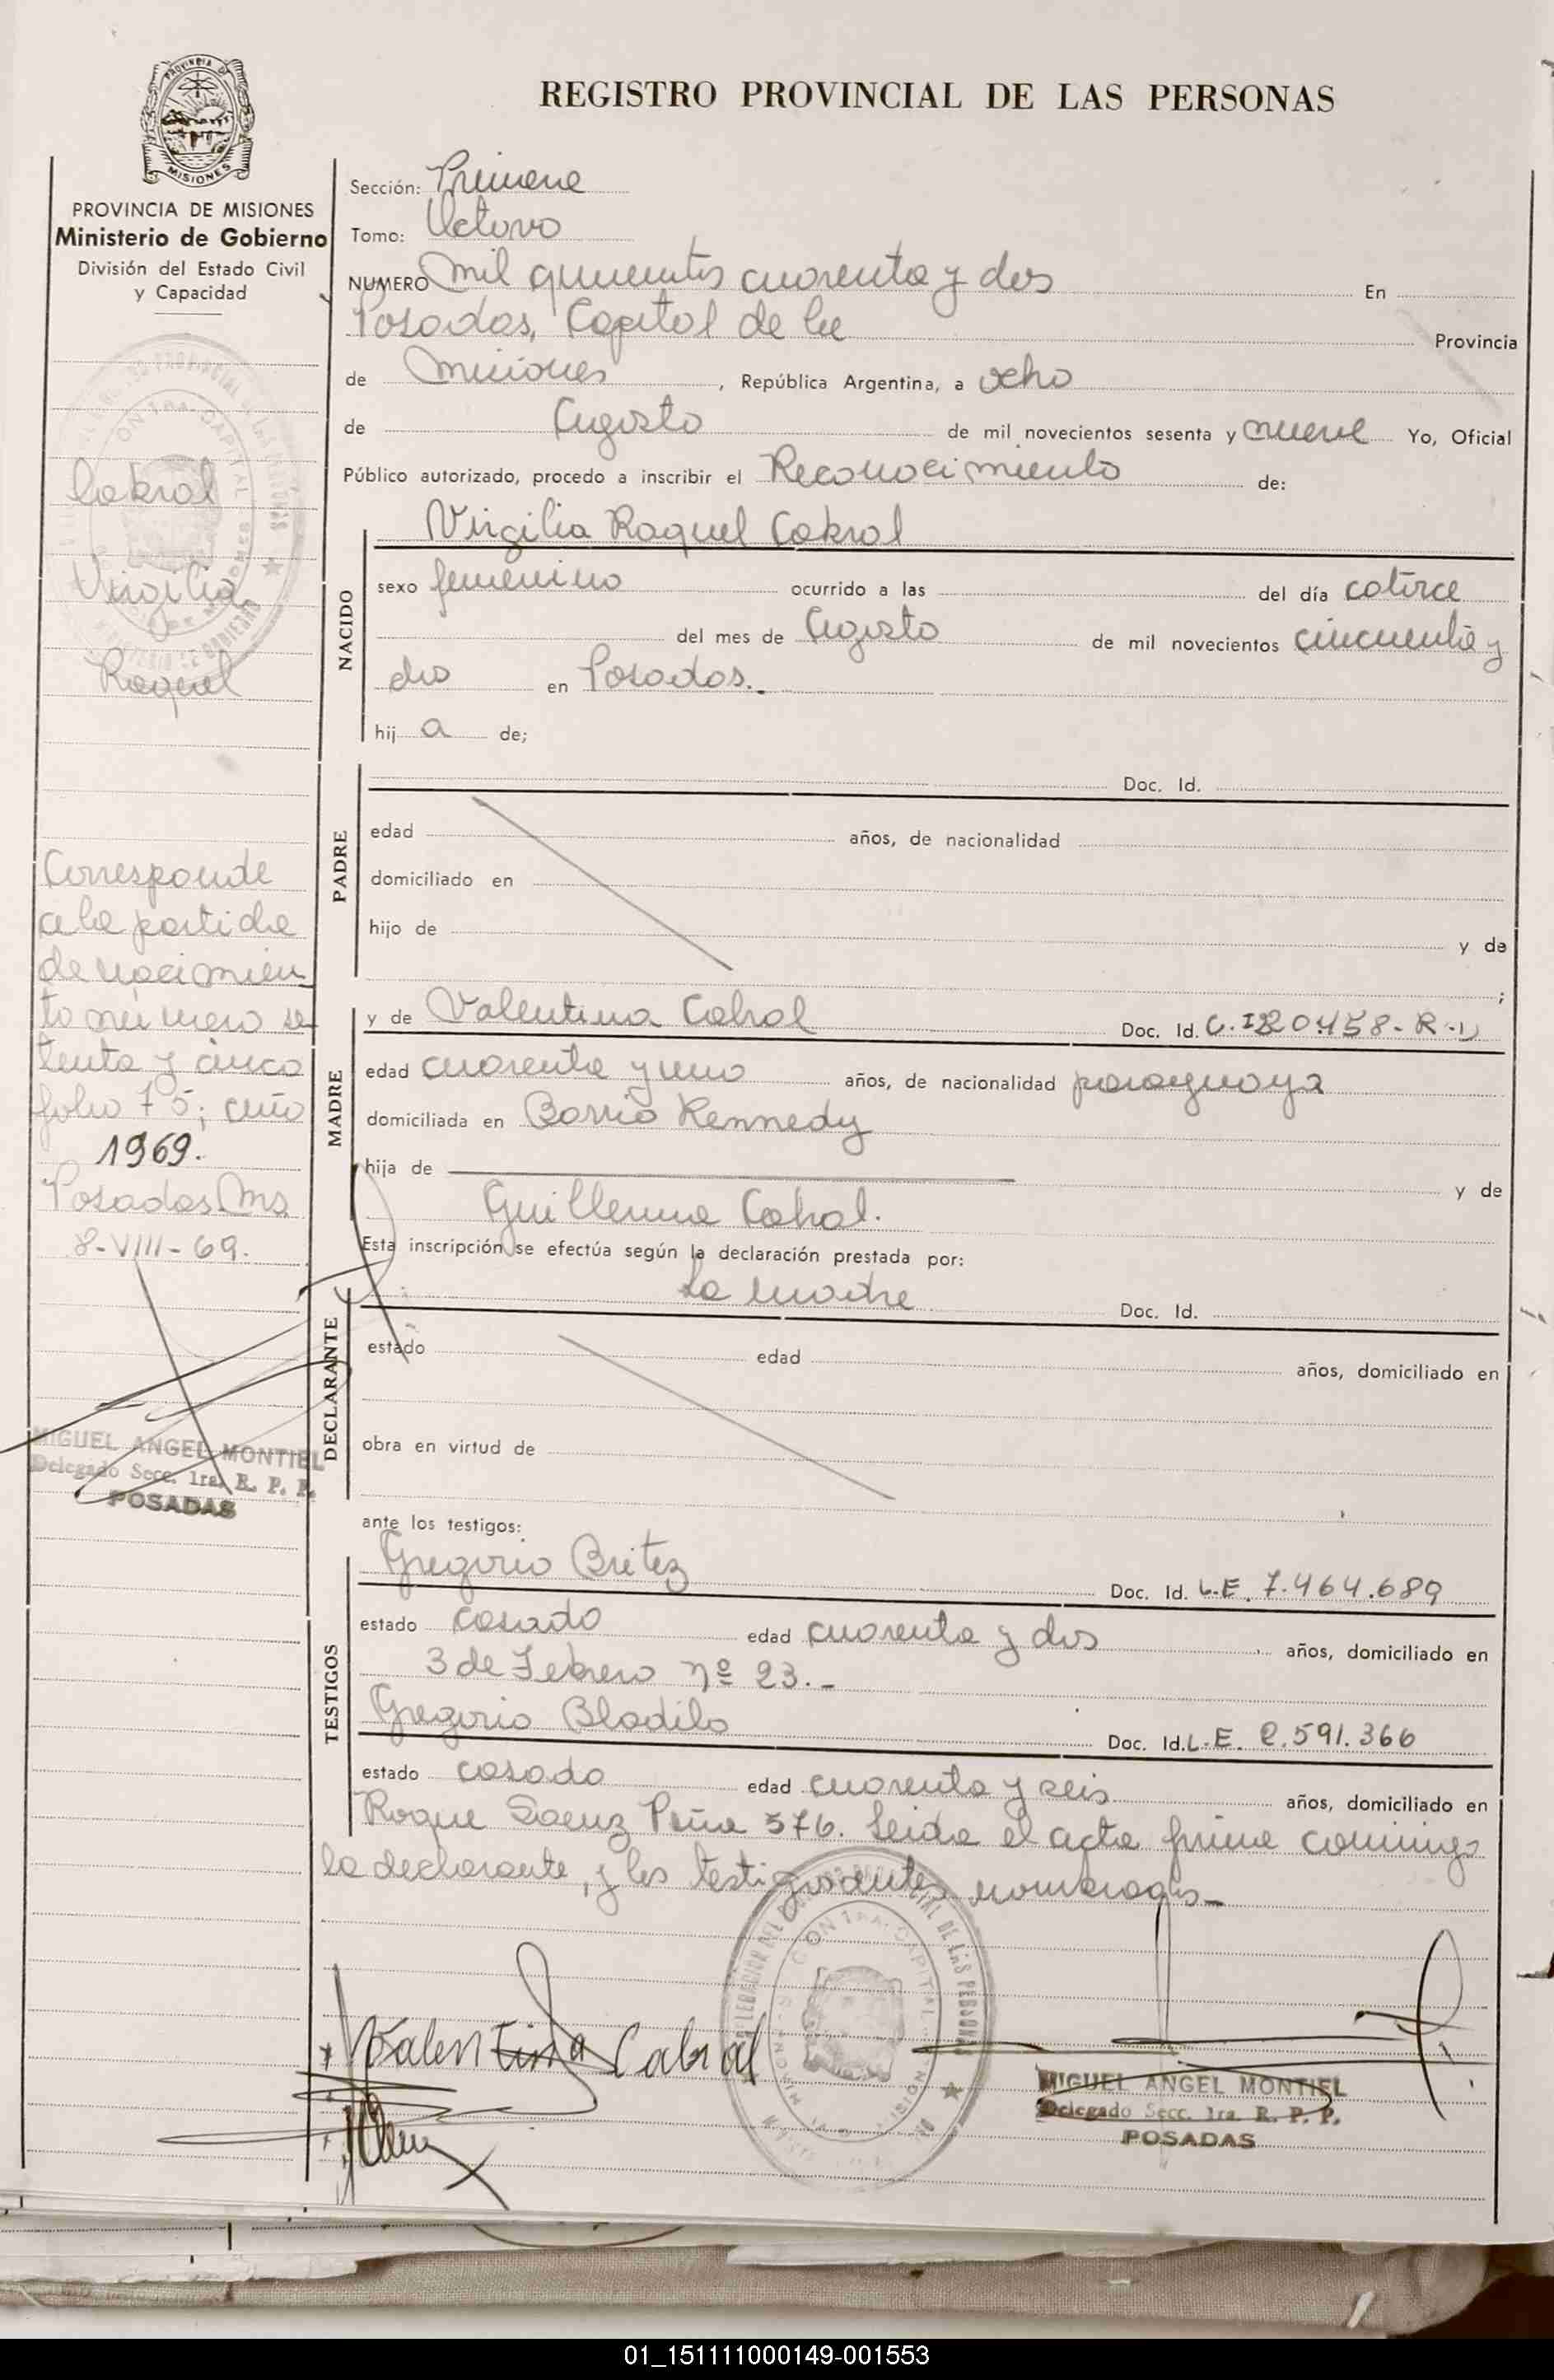 REGISTRO PROVINCIAL DE LAS PERSONAS
PROVINCIA DE
MISIONES
PROVINCIA DE MISIONES
Ministerio de Gobierno
División del Estado Civil
y Capacidad
Cabral
Virgilia
Raquel
Corresponde
a la partida
de nacimien
to número se
tenta y cinco
folio 75; año
1969.
Posadas Ms
8-VIII-69.
MIGUEL ANGEL MONTIEL
Delegado Secc. 1ra. R. P. P.
POSADAS
Sección: Primera
Tomo: Octavo
NUMERO Mil quinientos cuarenta y dos En
Posadas, Capital de la Provincia
de Misiones, República Argentina, a ocho
de Agosto de mil novecientos sesenta y nueve Yo, Oficial
Público autorizado, procedo a inscribir el Reconocimiento de:
NACIDO
Virgilia Raquel Cabral
sexo femenino ocurrido a las del día catorce
del mes de Agosto de mil novecientos cincuenta y
dos en Posadas.
hij a de;
PADRE
Doc. Id.
edad años, de nacionalidad
domiciliado en
hijo de y de
;
MADRE
y de Valentina Cabral Doc. Id. C.I. 20.458-R.
edad cuarenta y uno años, de nacionalidad paraguaya
domiciliada en Barrio Kennedy
hija de y de
Guillerma Cabral.
Esta inscripción se efectúa según la declaración prestada por:
DECLARANTE
La madre Doc. Id.
estado edad años, domiciliado en
obra en virtud de
ante los testigos:
TESTIGOS
Gregorio Britez Doc. Id. L.E. 7.464.689
estado casado edad cuarenta y dos años, domiciliado en
3 de Febrero nº 23.-
Gregorio Bladilo Doc. Id. L.E. 2.591.366
estado casado edad cuarenta y seis años, domiciliado en
Roque Saenz Peña 576. Leida el acta firma conmigo
la declarante, y los testigos antes nombrados-
Valentina Cabral
MIGUEL ANGEL MONTIEL
Delegado Secc. 1ra. R. P. P.
POSADAS
01_151111000149-001553